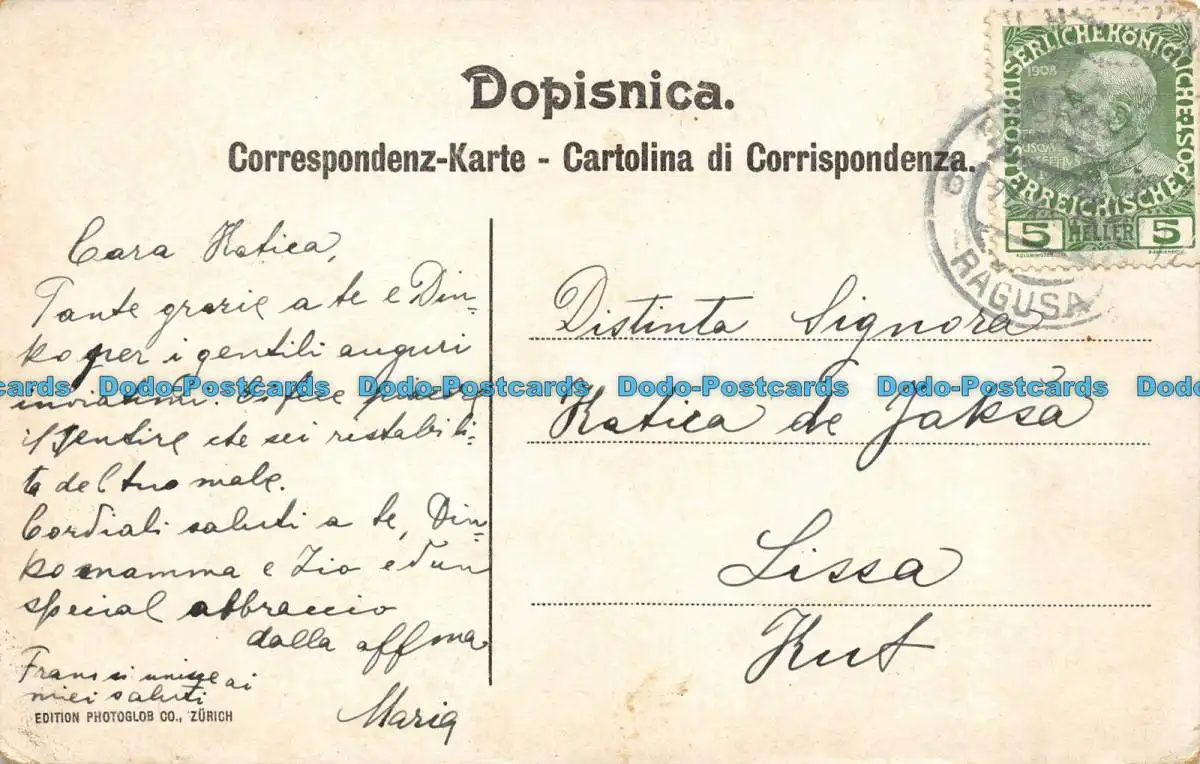 Dopisnica.
Correspondenz-Karte - Cartolina di Corrispondenza.
KAISERLICHE KÖNIGLICHE ÖSTERREICHISCHE
1908
5 HELLER 5
RAGUSA
Cara Katica,
Tante grazie a te e Din=
ko per i gentili auguri
inviatimi. Ci fece
il sentire che sei ristabili=
ta del tuo male.
Cordiali saluti a te, Din=
ko mamma e Zio ed un
special abbraccio
dalla affma
Maria
Frans si unisce ai
miei saluti
EDITION PHOTOGLOB CO., ZÜRICH
Distinta Signora
Katica de Jakša
Lissa
Kut
Dodo-Postcards Dodo-Postcards Dodo-Postcards Dodo-Postcards